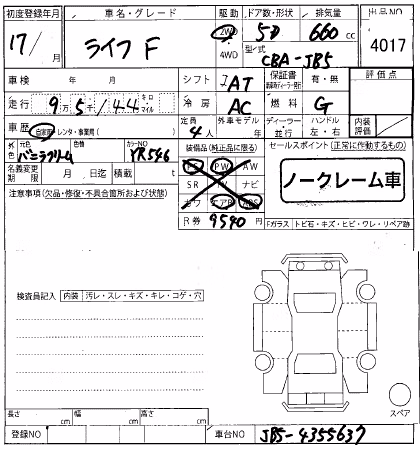 初度登録年月 車名・グレード 駆動 ドア数・形状 排気量 出品NO
17/ 月 ライフ F 2WD 4WD 5D 660 cc 4017
型式 CBA-JB5
車検 年 月 シフト AT 保証書 有・無 評価点
走行 9万5千144 キロ マイル 冷房 AC 燃料 G
車歴 自家用 レンタ・事業用( ) 定員 4人 外車モデル 年 ディーラー 並行 ハンドル 左・右 内装評価
外色 元色 バニラクリーム 色替 カラーNO YR546 装備品(純正品に限る) セールスポイント(正常に作動するもの)
名義変更期限 月 日迄 積載 t PS PW AW ノークレーム車
注意事項(欠品・修復・不具合箇所および状態) SR TV ナビ
カワ エアB ABS
R券 9540 Fガラス トビ石・キズ・ヒビ・ワレ・リペア跡
検査員記入 内装 汚レ・スレ・キズ・キレ・コゲ・穴
スペア
長さ cm 幅 cm 高さ cm
登録NO 車台NO JB5-4355637